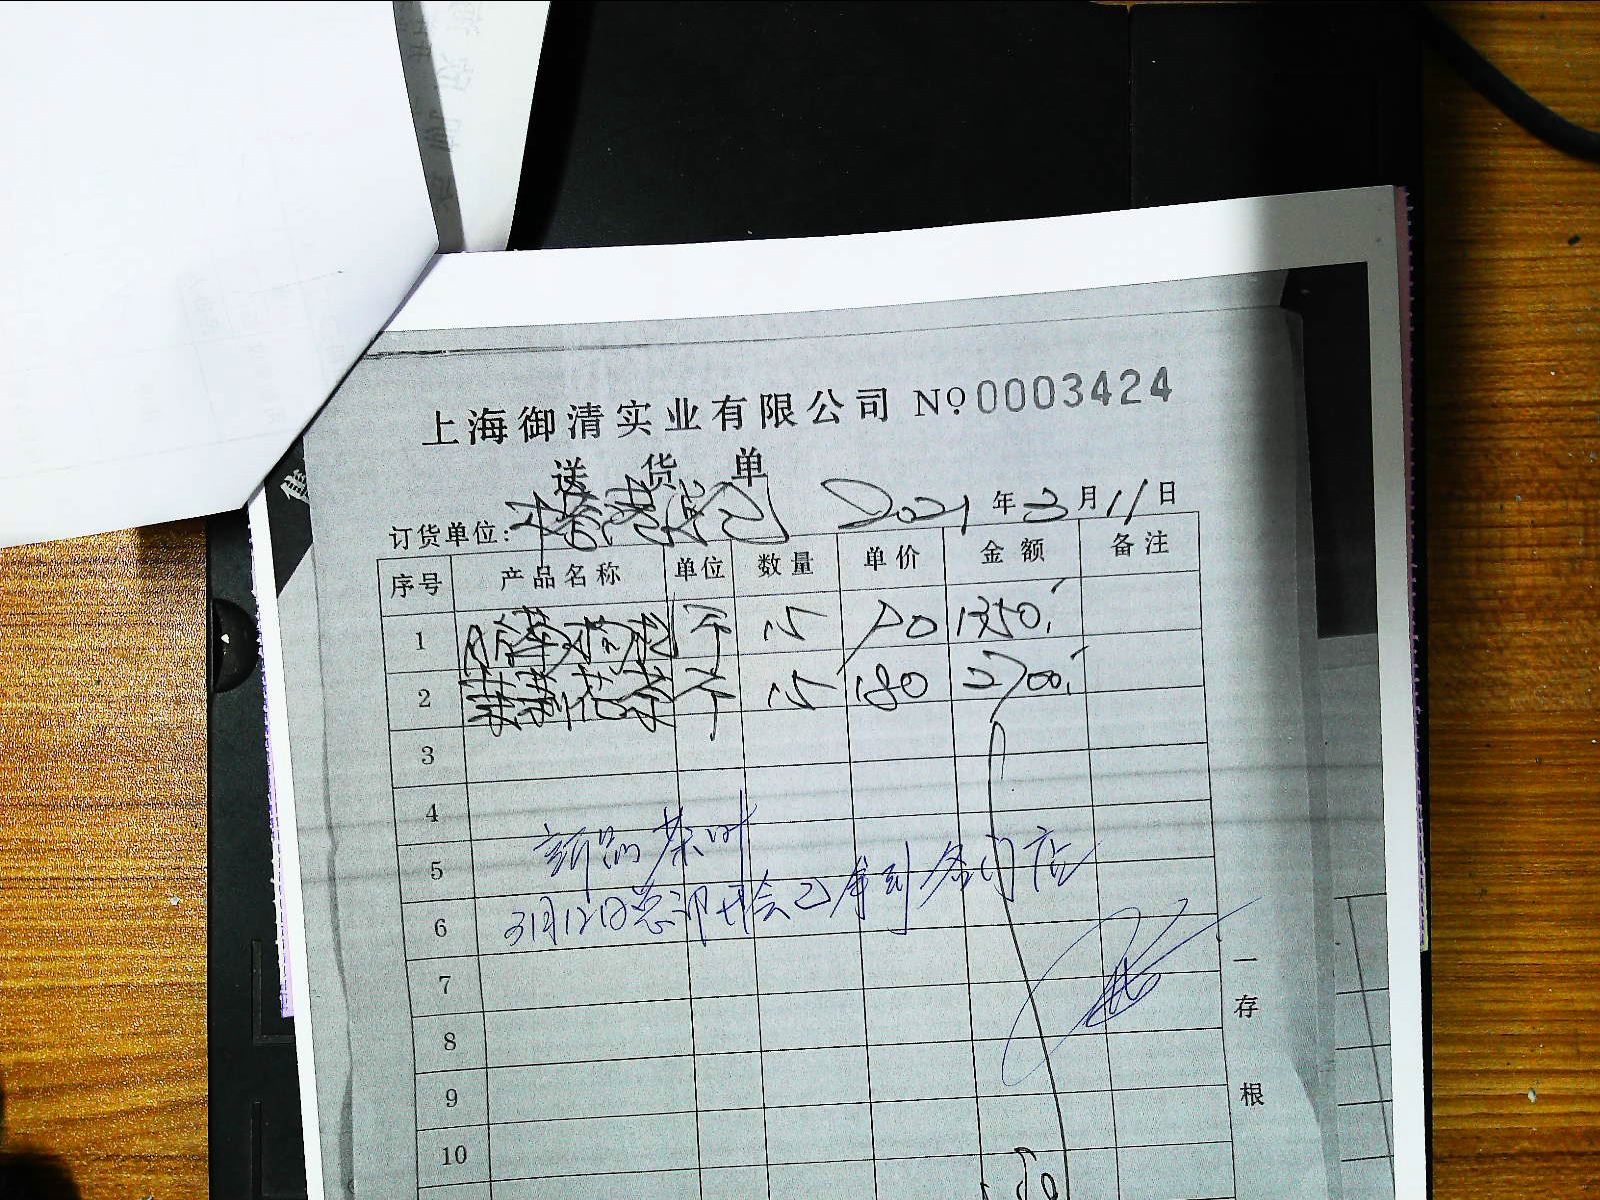 上海御清实业有限公司 No.0003424
送货单
订货单位: 2021年3月11日
序号 产品名称 单位 数量 单价 金额 备注
1 斤 15 90 1350.
2 茉莉花茶 斤 15 180 2700.
3
4
新品茶叶
5
3月12日总部开会已拿到各门店
6
7
8
9
10
一存根